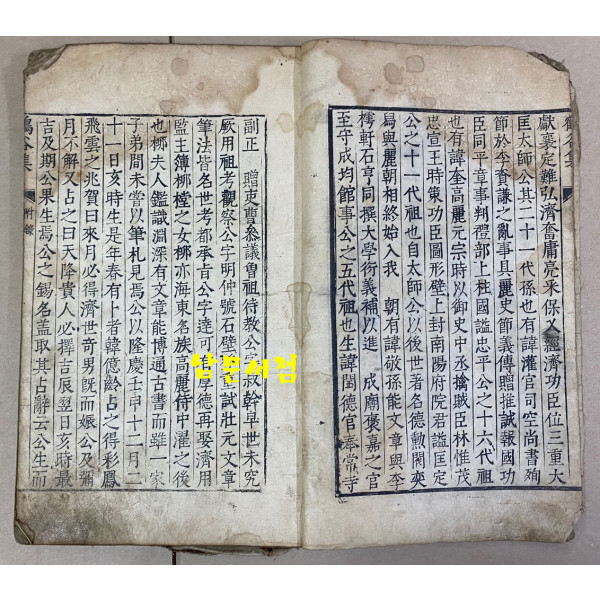 獻襄定難弘濟奮庸亮采保乂經濟功臣位三重大
匡太師公其二十一代孫也有諱灌官司空尚書殉
節於李資謙之亂事具麗史節義傳贈推誠報國功
臣同平章事判禮部上柱國謚忠平公之十六代祖
也有諱奎高麗元宗時以御史中丞擒賊臣林惟茂
忠宣王時策功臣圖形壁上封南陽府院君謚匡定
公之十一代祖也自太師公以後世者名德勳閥奕
舄與麗朝相終始入我 朝有諱敬孫能文章與李
樗軒石亨同撰大學衍義補以進 成廟褒嘉之官
至守成均館事公之五代祖也生諱閏德官奉常寺
副正 贈吏曹參議曾祖待教公字叔幹早世未究
厥用祖考觀察公字明仲號石壁 試壯元文章
筆法皆名世考都承旨公字達可 厚德再娶濟用
監主簿栁樘之女栁亦海東名族高麗侍中濯之後
也栁夫人鑑識淵深有文章能博通古書而雖一家
子弟間未嘗以筆札見焉公以隆慶壬申十二月二
十一日亥時生是年春有卜者韓億齡占之得彩鳳
飛雲之兆賀曰來月必得濟世奇男旣而娠公及彌
月不解又占之曰天降貴人必擇吉辰翌日亥時最
吉及期公果生焉公之錫名盖取其占辭云公生而
鶴谷集
附錄
남문서점